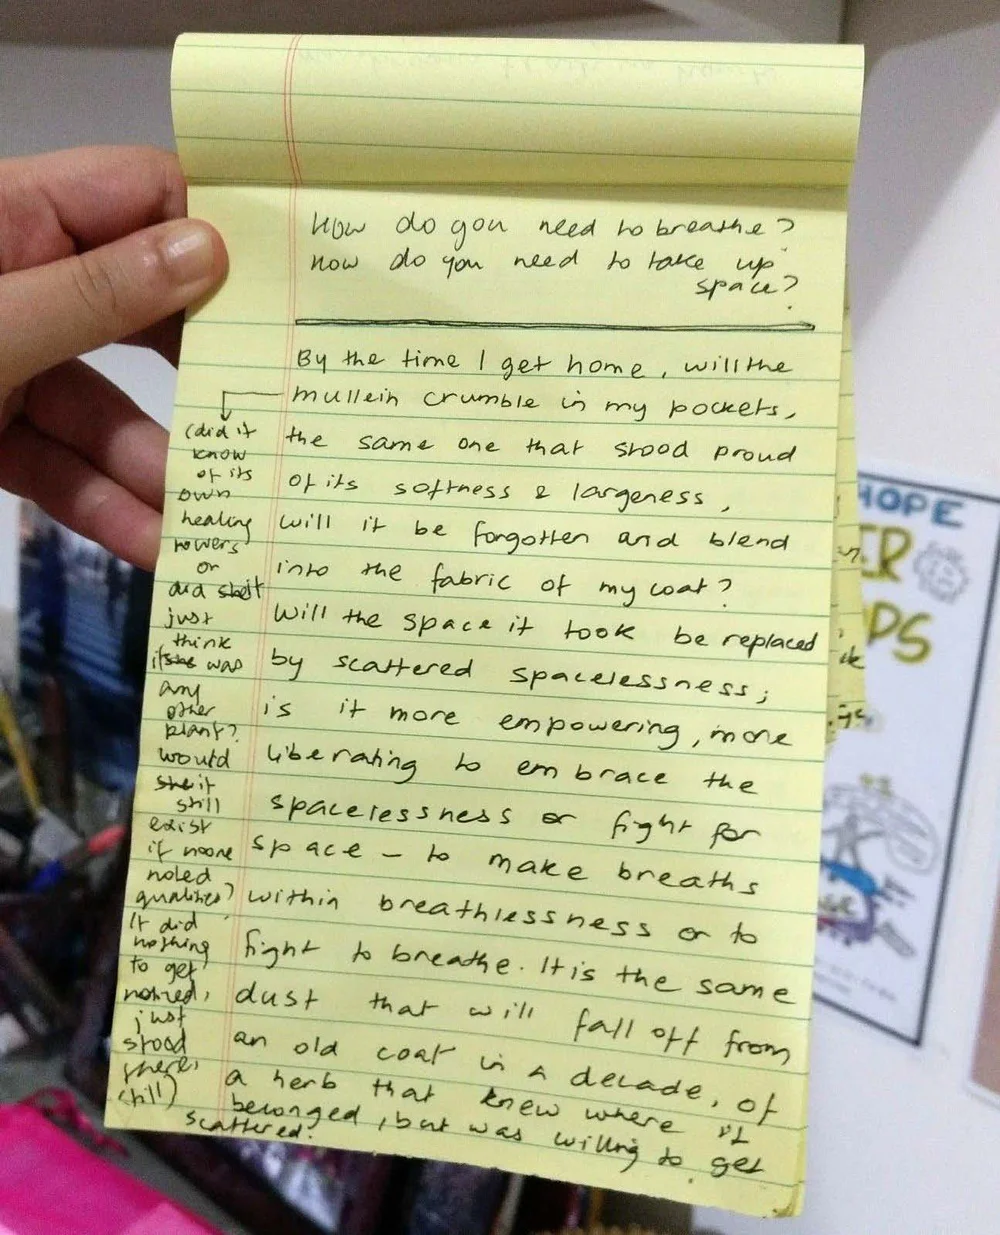 How do you need to breathe?
How do you need to take up
space?
By the time I get home, will the
mullein crumble in my pockets,
the same one that stood proud
of its softness & largeness,
will it be forgotten and blend
into the fabric of my coat?
Will the space it took be replaced
by scattered spacelessness;
is it more empowering, more
liberating to embrace the
spacelessness or fight for
space – to make breaths
within breathlessness or to
fight to breathe. It is the same
dust that will fall off from
an old coat in a decade, of
a herb that knew where it
belonged, but was willing to get
scattered.
(did it
know
of its
own
healing
powers
or
did it
just
think
it was
any
other
plant?
would
it
still
exist
if noone
noted
qualities?
It did
nothing
to get
noticed,
just
stood
there,
still)
HOPE
ER
DS